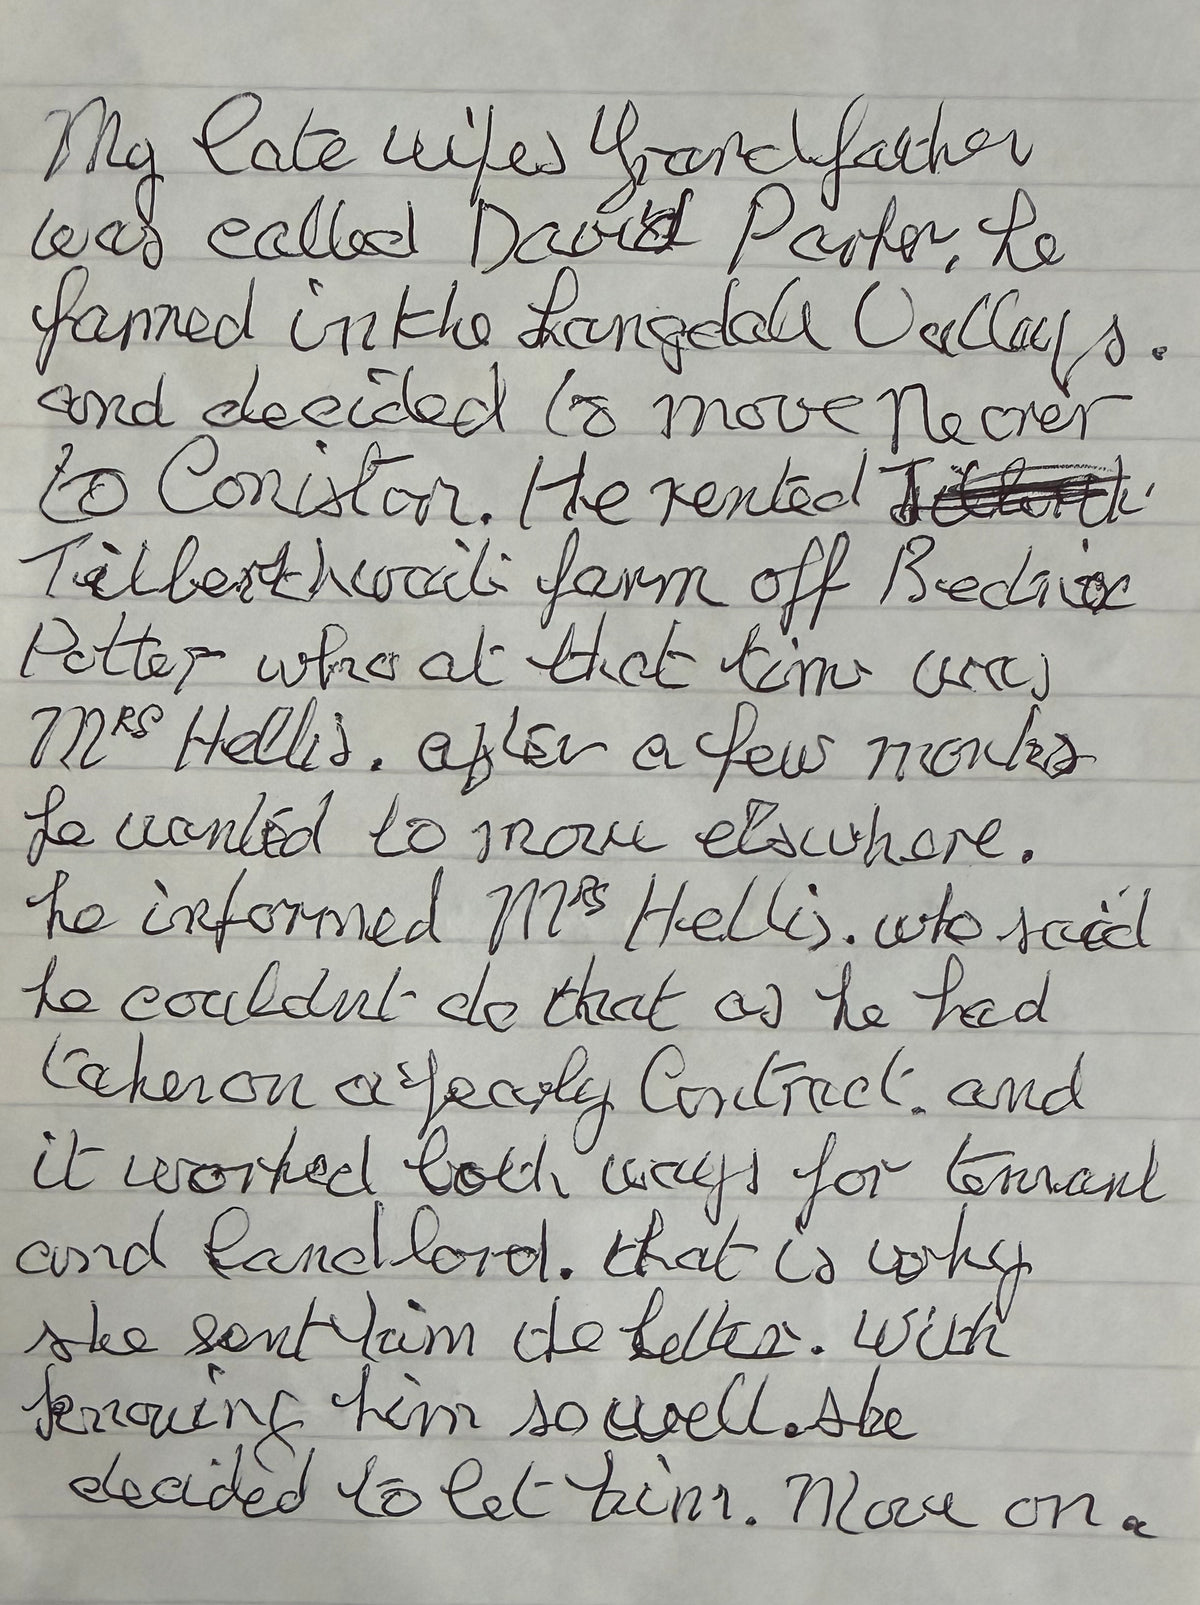 My late wifes Grandfather
was called David Parker, he
farmed in the Langdale Valleys.
and decided to move Nearer
to Coniston. He rented
Tilberthwaite farm off Bedrix
Potter who at that time was
Mrs Hellis. after a few months
he wanted to move elswhere.
he informed Mrs Hellis. who said
he couldnt do that as he had
taken on a yearly Contract. and
it worked both ways for tennant
and landlord. that is why
she sent him the letter. With
knowing him so well. she
decided to let him. Move on.